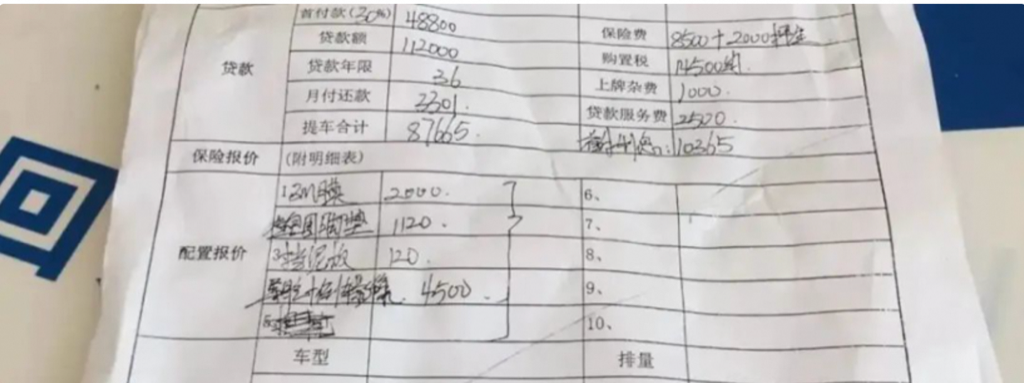 首付款(30%) 48800 保险费 8500+2000押金
贷款额 112000 购置税 14500
贷款
贷款年限 36 上牌杂费 1000.
月付还款 3301. 贷款服务费 2500
提车合计 87665. 10365
保险报价 (附明细表)
1 3M膜 2000. 6、
脚垫 1120. 7、
配置报价
3 挡泥板 120. 8、
4500. 9、
10、
车型 排量